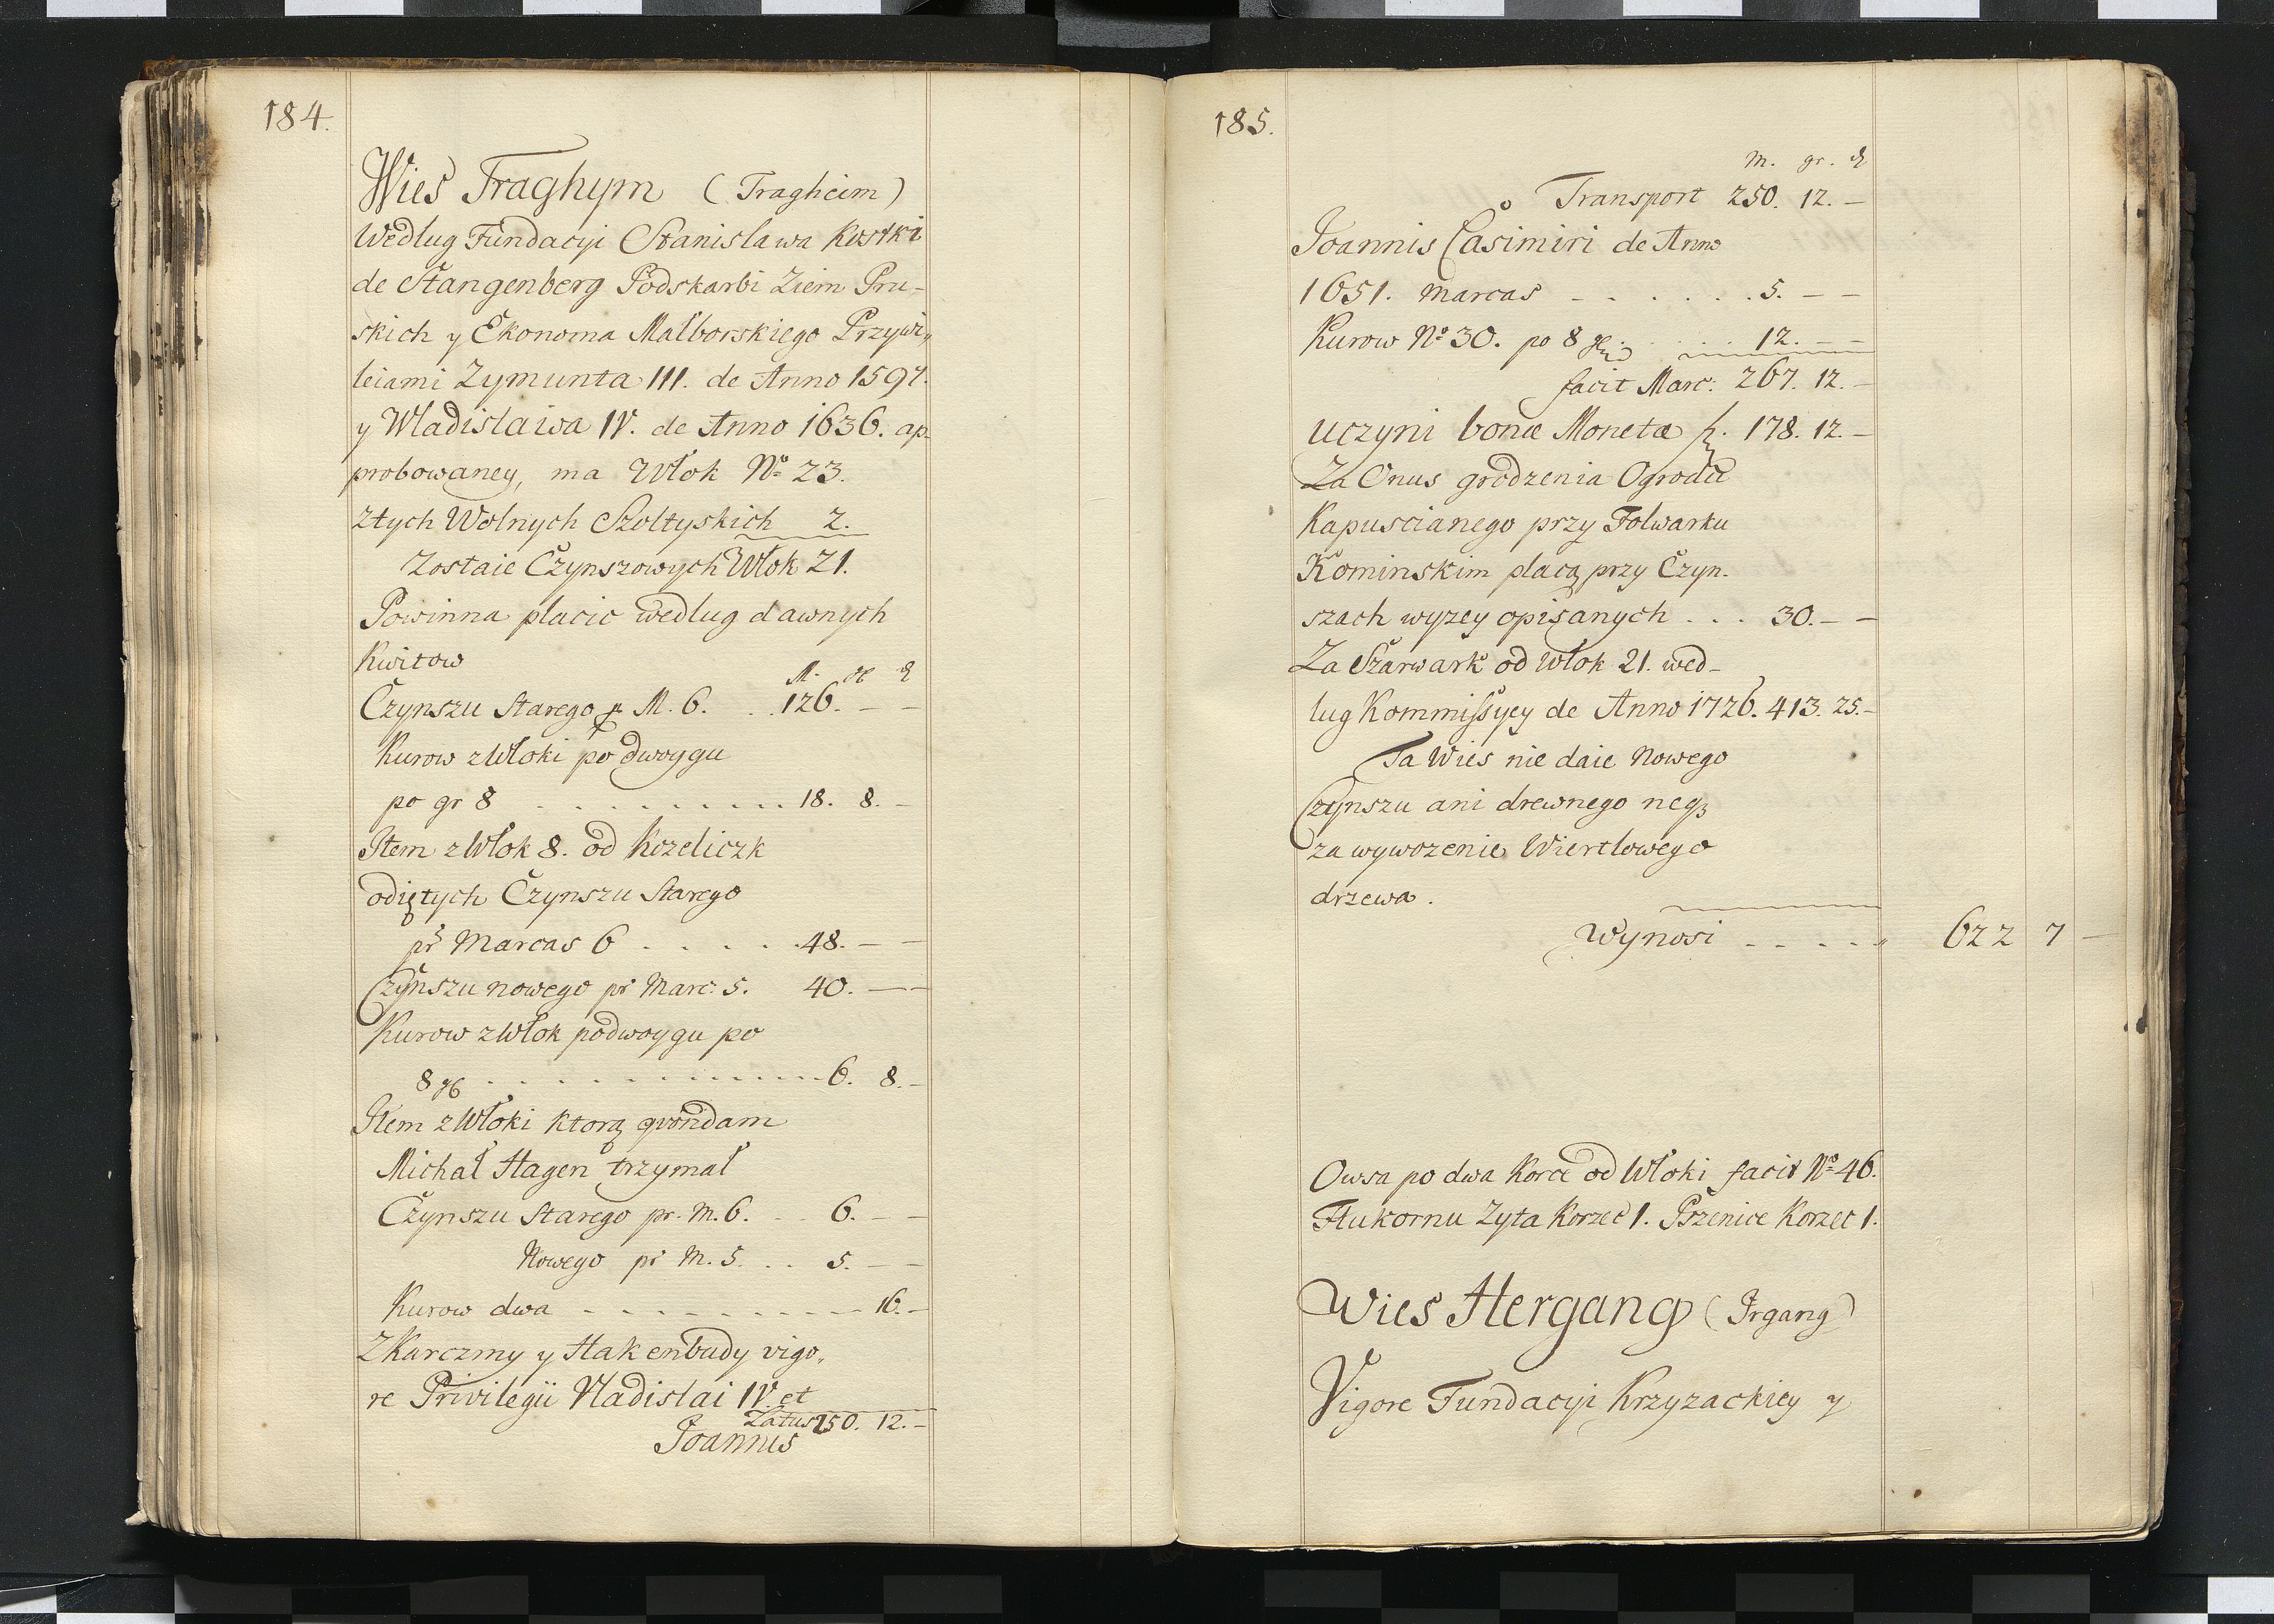 184.
Wies Traghym (Tragheim)
Według Fundacyi Stanisława Kostki
de Stangenberg Podskarbi Ziem Pru-
skich y Ekonoma Malborskiego Przywi„
leiami Zymunta III. de Anno 1597.
y Wladislawa IV. de Anno 1636. ap-
probowaney, ma Włok No 23.
Ztych Wolnych Szoltyskich 2.
Zostaie Czynszowych Włok 21.
Powinna placic według dawnych
Kwitow
M. gr
Czynszu Starego pr M. 6. . . 126. — —
Kurow z Włoki po dwoygu
po gr 8 . . . . . . . . . 18. 8. —
Item z Włok 8. od Kozeliczk
odiętych Czynszu Starego
pr Marcas 6 . . . . . 48. — —
Czynszu nowego pr Marc: 5. 40. — —
Kurow z Włok podwoygu po
8 gr . . . . . . . . . . . 6. 8. —
Item z Włoki Ktorą quondam
Michał Hagen trzymał
Czynszu Starego pr. M. 6. . . 6. — —
Nowego pr M. 5. . . 5. — —
Kurow dwa - - - - - - - - - 16. —
Z Karczmy y Hakenbudy vigo„
re Privilegii Vladislai IV. et
Latus 250. 12. —
Joannis
185.
m. gr.
Transport 250. 12. —
Joannis Casimiri de Anno
1651. Marcas - - . . . . . 5. — —
Kurow No 30. po 8 gr . . . . 12. — —
facit Marc: 267. 12. —
Uczyni bonæ Monetæ f. 178. 12. —
Za Onus grodzenia Ogroda
Kapuscianego przy Folwarku
Kominskim placą przy Czyn-
szach wyzey opisanych . . . 30. — —
Za Szarwark od Włok 21. wed-
lug Kommissyey de Anno 1726. 413. 25. —
Ta Wies nie daie Nowego
Czynszu ani drewnego neqz
za wywozenie Wiertlowego
drzewa.
Wynosi - - . . . 622 7 —
Owsa po dwa Korce od Włoki facit No 46.
Flukornu Zyta Korzec 1. Przenice Korzec 1.
Wies Hergang (Irgang)
Vigore Fundacyi Krzyzackiey y